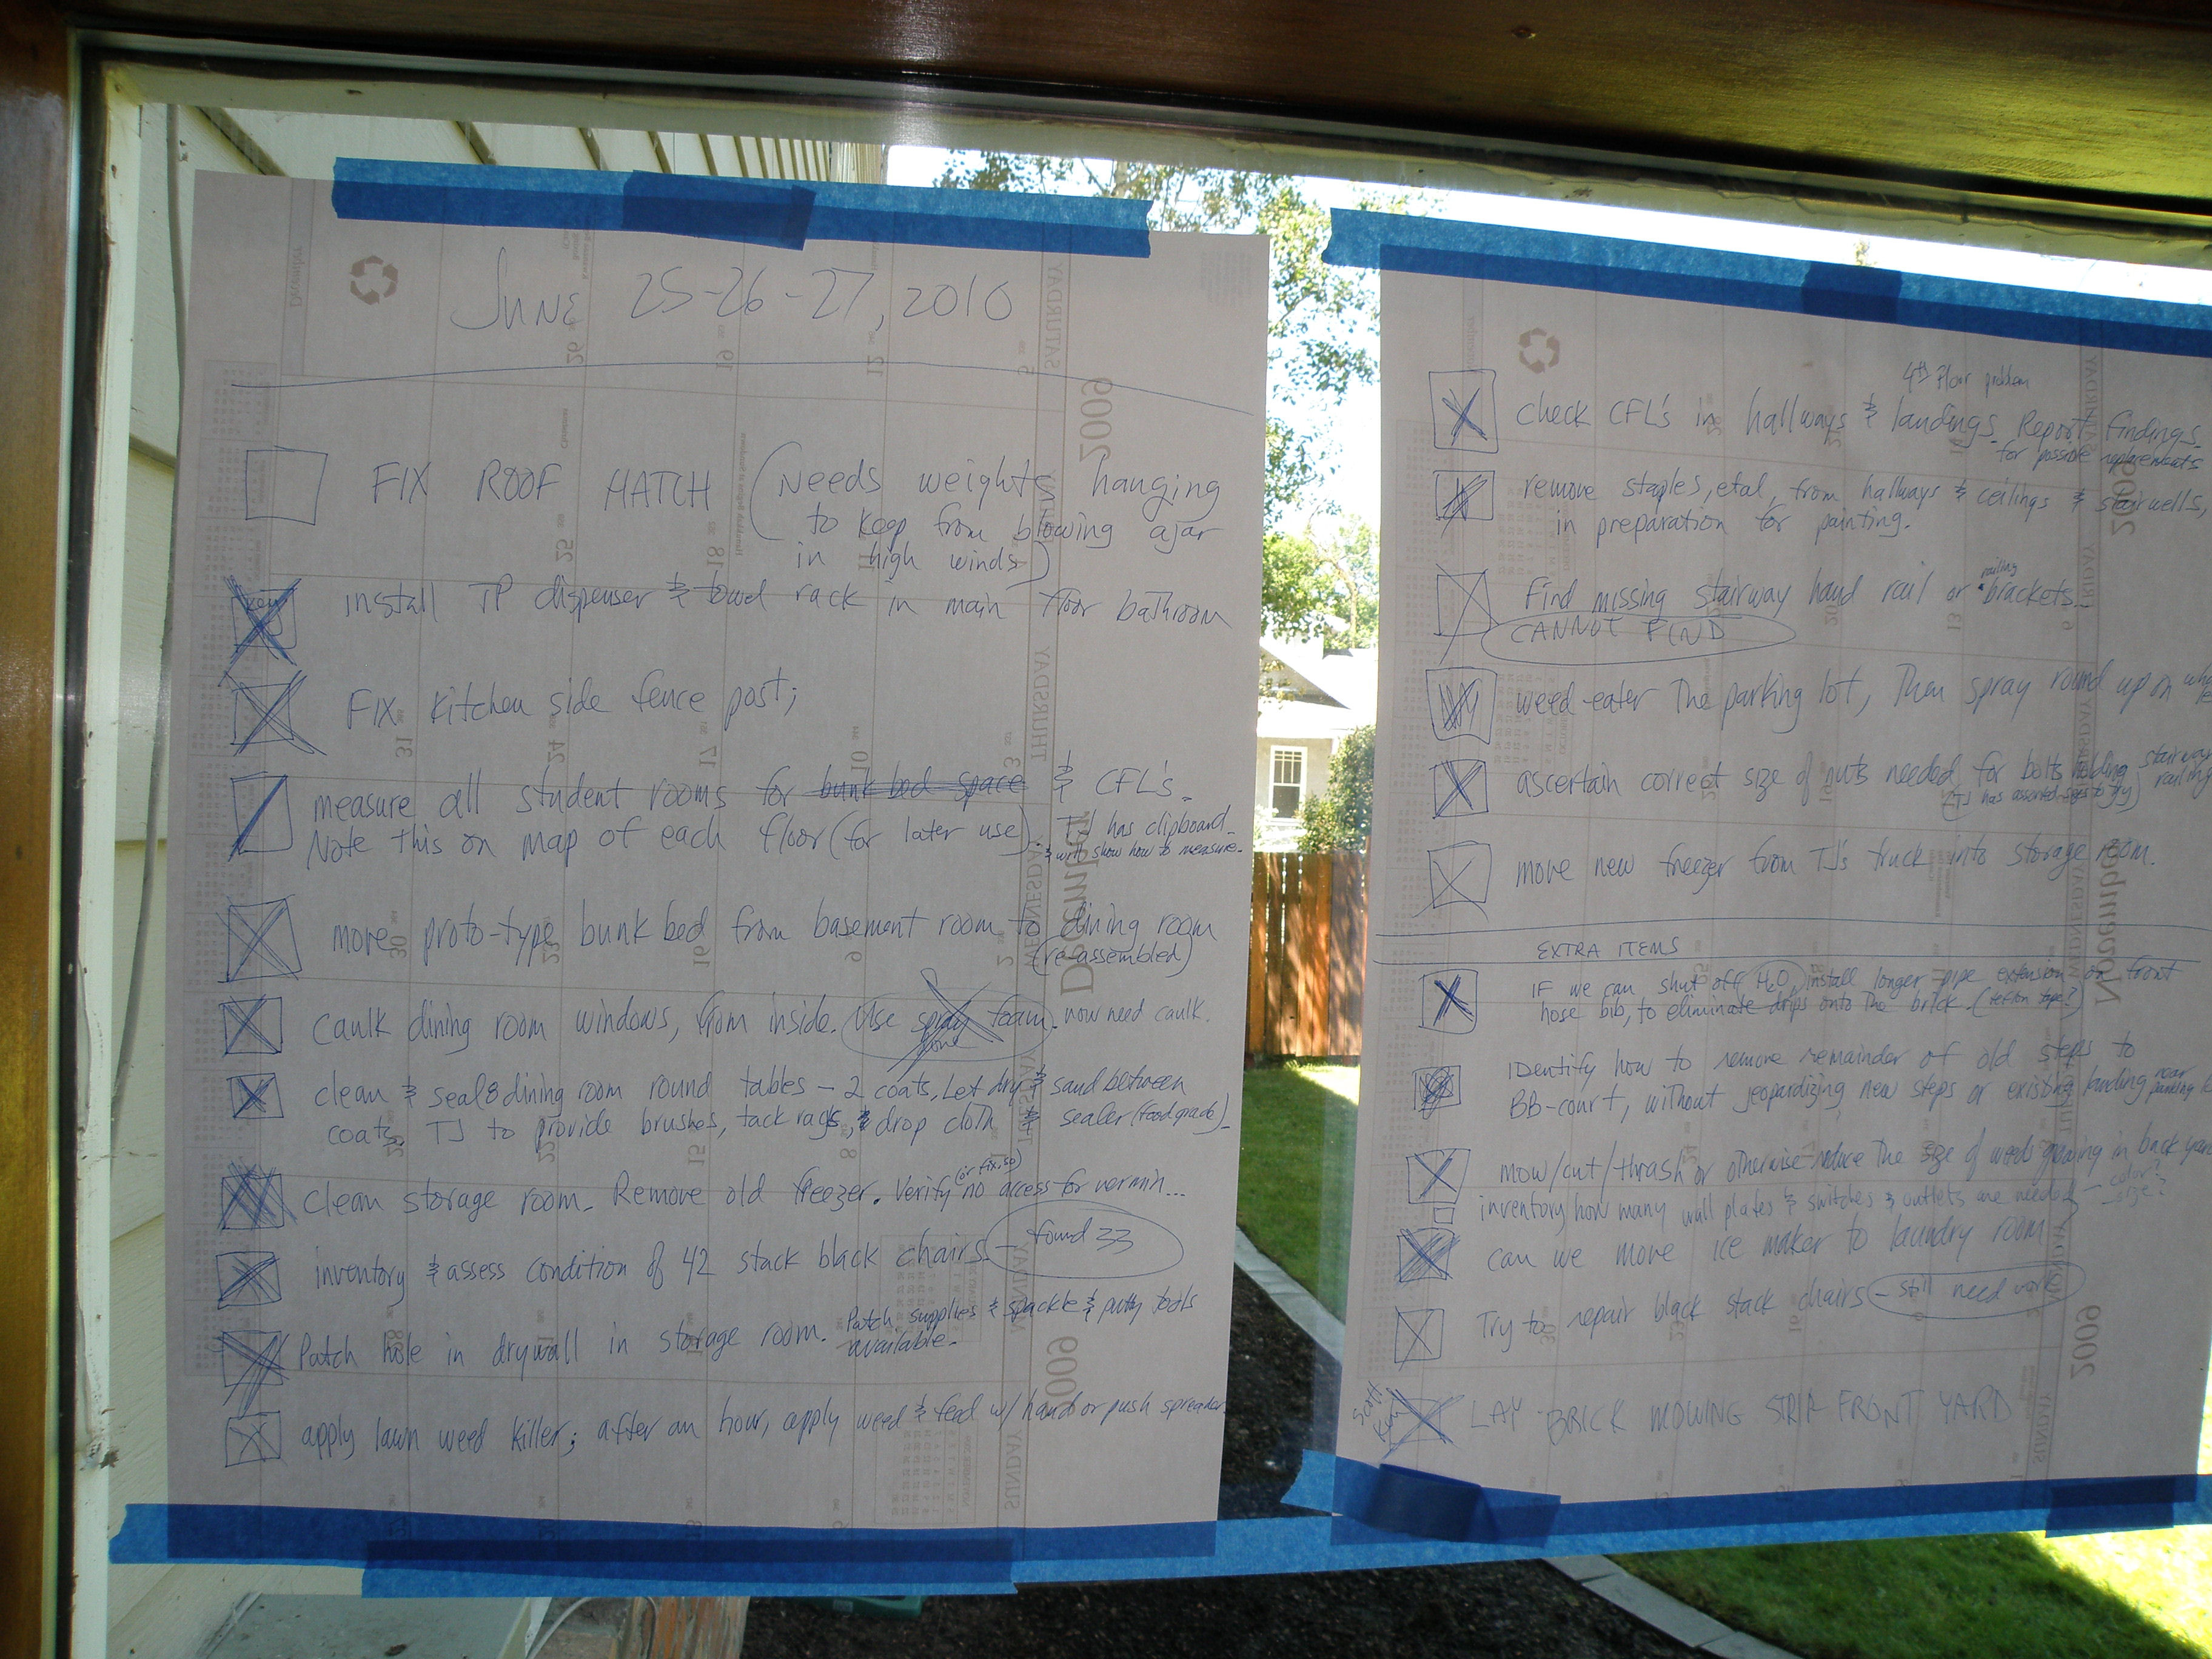 June 25-26-27, 2010
FIX ROOF HATCH (Needs weights hanging
to keep from blowing ajar
in high winds)
key
install TP dispenser & towel rack in main floor bathroom
FIX kitchen side fence post;
measure all student rooms for bunk bed space & CFL's.
Note this on map of each floor (for later use). TJ has clipboard
& will show how to measure.
move proto-type bunk bed from basement room to dining room
(re-assembled)
caulk dining room windows, from inside. Use spray foam. now need caulk.
done
clean & seal 8 dining room round tables - 2 coats, Let dry & sand between
coats. TJ to provide brushes, tack rags, & drop cloth & sealer (food grade).
(or fix, so)
clean storage room. Remove old freezer. Verify no access for vermin...
inventory & assess condition of 42 stack black chairs - found 33
Patch hole in drywall in storage room. Patch supplies & spackle & putty tools
available.
apply lawn weed killer; after an hour, apply weed & feed w/ hand or push spreader
4th Floor problem
check CFL's in hallways & landings. Report findings
for possible replacements
remove staples, etal, from hallways & ceilings & stairwells,
in preparation for painting.
railing
find missing stairway hand rail or brackets.
CANNOT FIND
weed-eater The parking lot, Then spray round up on
ascertain correct size of nuts needed for bolts holding stairway
railing
(TJ has assorted sizes to try)
move new freezer from TJ's truck into storage room.
EXTRA ITEMS
IF we can shut off H2O, install longer pipe extension on front
hose bib, to eliminate drips onto the brick. (teflon tape?)
IDentify how to remove remainder of old steps to
BB-court, without jeopardizing new steps or existing landing near
parking
mow/cut/thrash or otherwise reduce the size of weeds growing in back yard
inventory how many wall plates & switches & outlets are needed - color?
- size?
can we move ice maker to laundry room
Try to repair black stack chairs - still need work
Scott
Key
LAY BRICK MOWING STRIP FRONT YARD
2009
December
SATURDAY
FRIDAY
THURSDAY
WEDNESDAY
TUESDAY
MONDAY
SUNDAY
2009
2009
November
2009